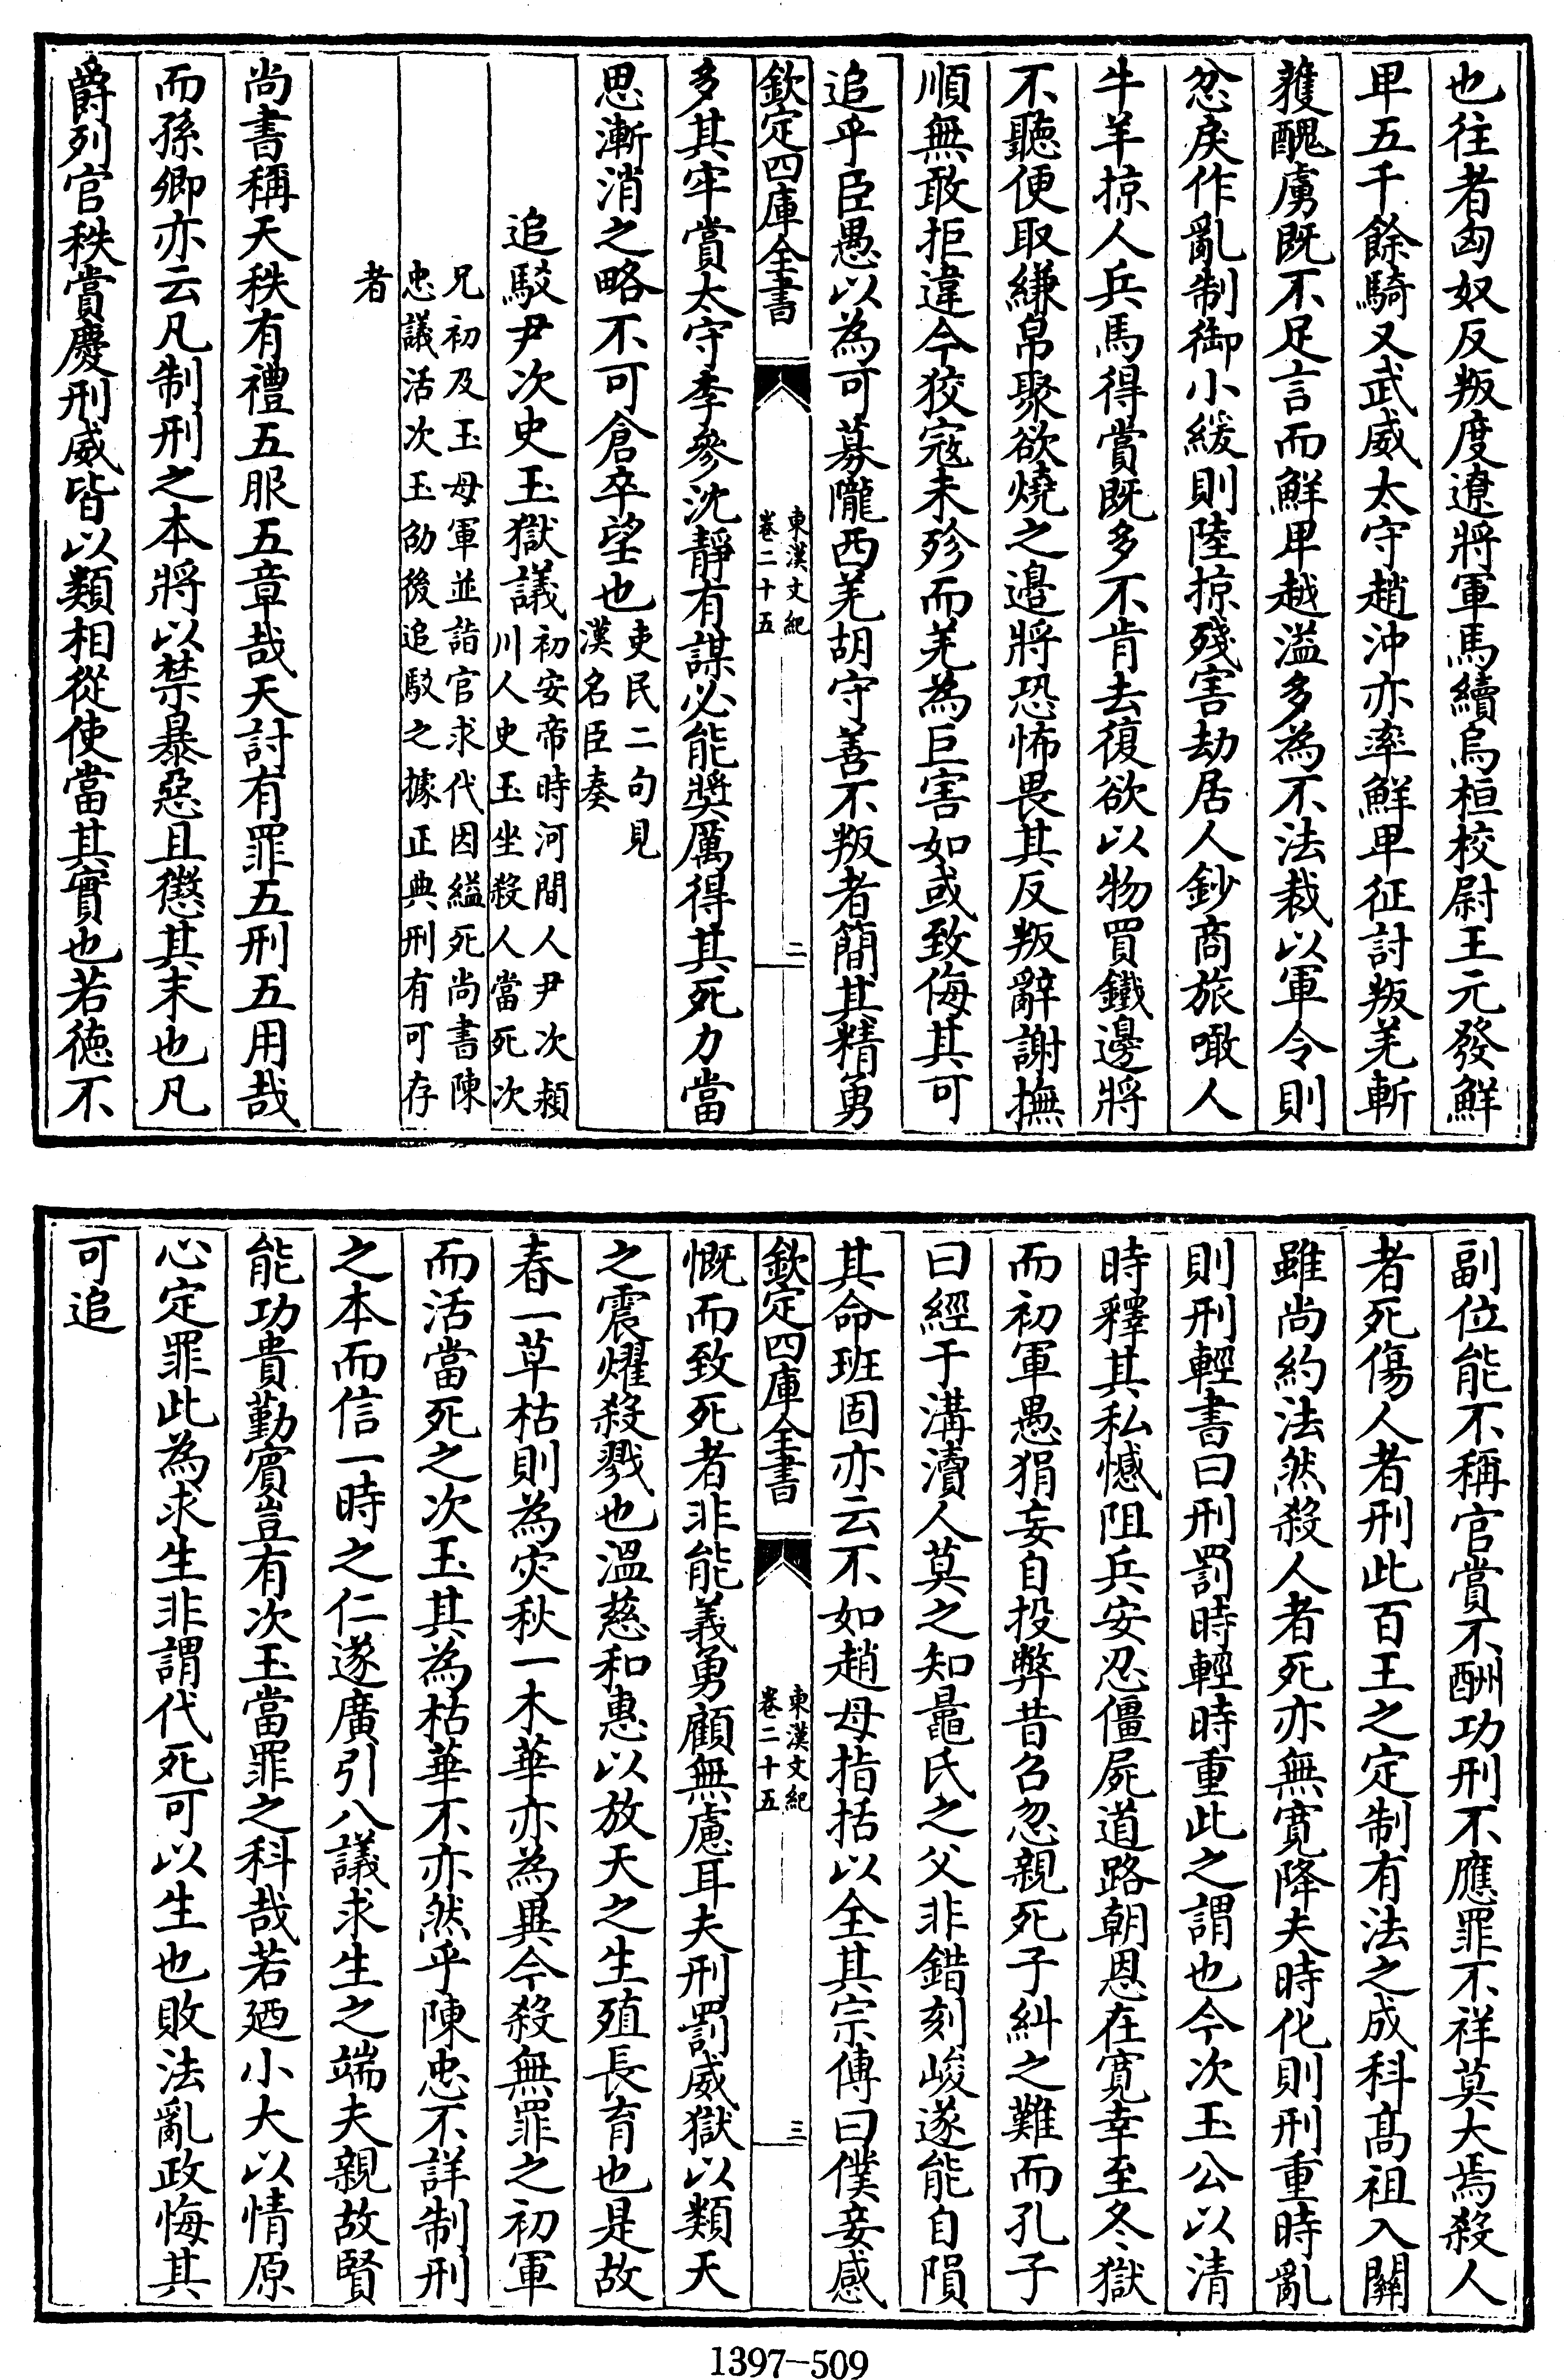 也往者匈奴反叛度遼將軍馬續烏桓校尉王元發鮮
卑五千餘騎又武威太守趙沖亦率鮮卑征討叛羌斬
獲醜虜既不足言而鮮卑越溢多為不法裁以軍令則
忿戾作亂制御小緩則陸掠殘害劫居人鈔商旅噉人
牛羊掠人兵馬得賞既多不肯去復欲以物買鐵邊將
不聽便取縑帛聚欲燒之邊將恐怖畏其反叛辭謝撫
順無敢拒違今狡寇未殄而羌為巨害如或致侮其可
追乎臣愚以為可募隴西羌胡守善不叛者簡其精勇
欽定四庫全書
東漢文紀
卷二十五
二
多其牢賞太守李參沈靜有謀必能奬厲得其死力當
思漸消之略不可倉卒望也吏民二句見
漢名臣奏
追駁尹次史玉獄議初安帝時河間人尹次潁
川人史玉坐殺人當死次
兄初及玉母軍並詣官求代因縊死尚書陳
忠議活次玉劭後追駁之據正典刑有可存
者
尚書稱天秩有禮五服五章哉天討有罪五刑五用哉
而孫卿亦云凡制刑之本將以禁暴惡且懲其末也凡
爵列官秩賞慶刑威皆以類相從使當其實也若徳不
副位能不稱官賞不酬功刑不應罪不祥莫大焉殺人
者死傷人者刑此百王之定制有法之成科髙祖入關
雖尚約法然殺人者死亦無寛降夫時化則刑重時亂
則刑輕書曰刑罰時輕時重此之謂也今次玉公以清
時釋其私憾阻兵安忍僵屍道路朝恩在寛幸至冬獄
而初軍愚狷妄自投弊昔召忽親死子糾之難而孔子
曰經于溝瀆人莫之知鼂氏之父非錯刻峻遂能自隕
其命班固亦云不如趙母指括以全其宗傳曰僕妾感
欽定四庫全書
東漢文紀
卷二十五
三
慨而致死者非能義勇顧無慮耳夫刑罰威獄以類天
之震燿殺戮也溫慈和惠以放天之生殖長育也是故
春一草枯則為災秋一木華亦為異今殺無罪之初軍
而活當死之次玉其為枯華不亦然乎陳忠不詳制刑
之本而信一時之仁遂廣引八議求生之端夫親故賢
能功貴勤賓豈有次玉當罪之科哉若廼小大以情原
心定罪此為求生非謂代死可以生也敗法亂政悔其
可追
1397-509